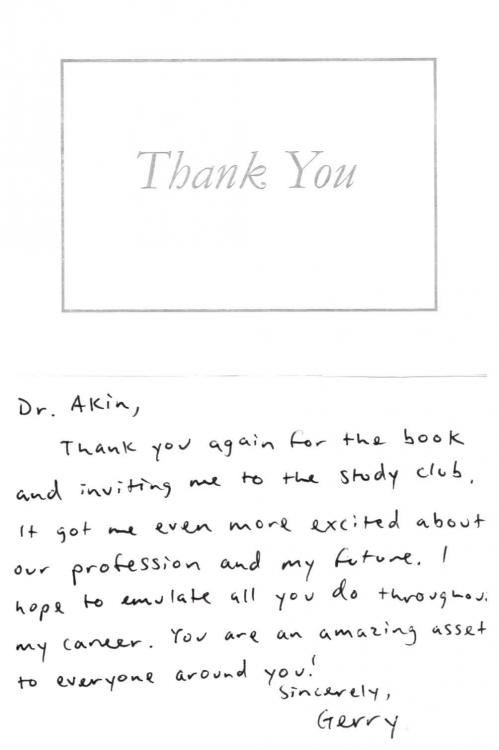 Thank You
Dr. Akin,
Thank you again for the book
and inviting me to the study club.
It got me even more excited about
our profession and my future. I
hope to emulate all you do throughou
my career. You are an amazing asset
to everyone around you!
Sincerely,
Gerry